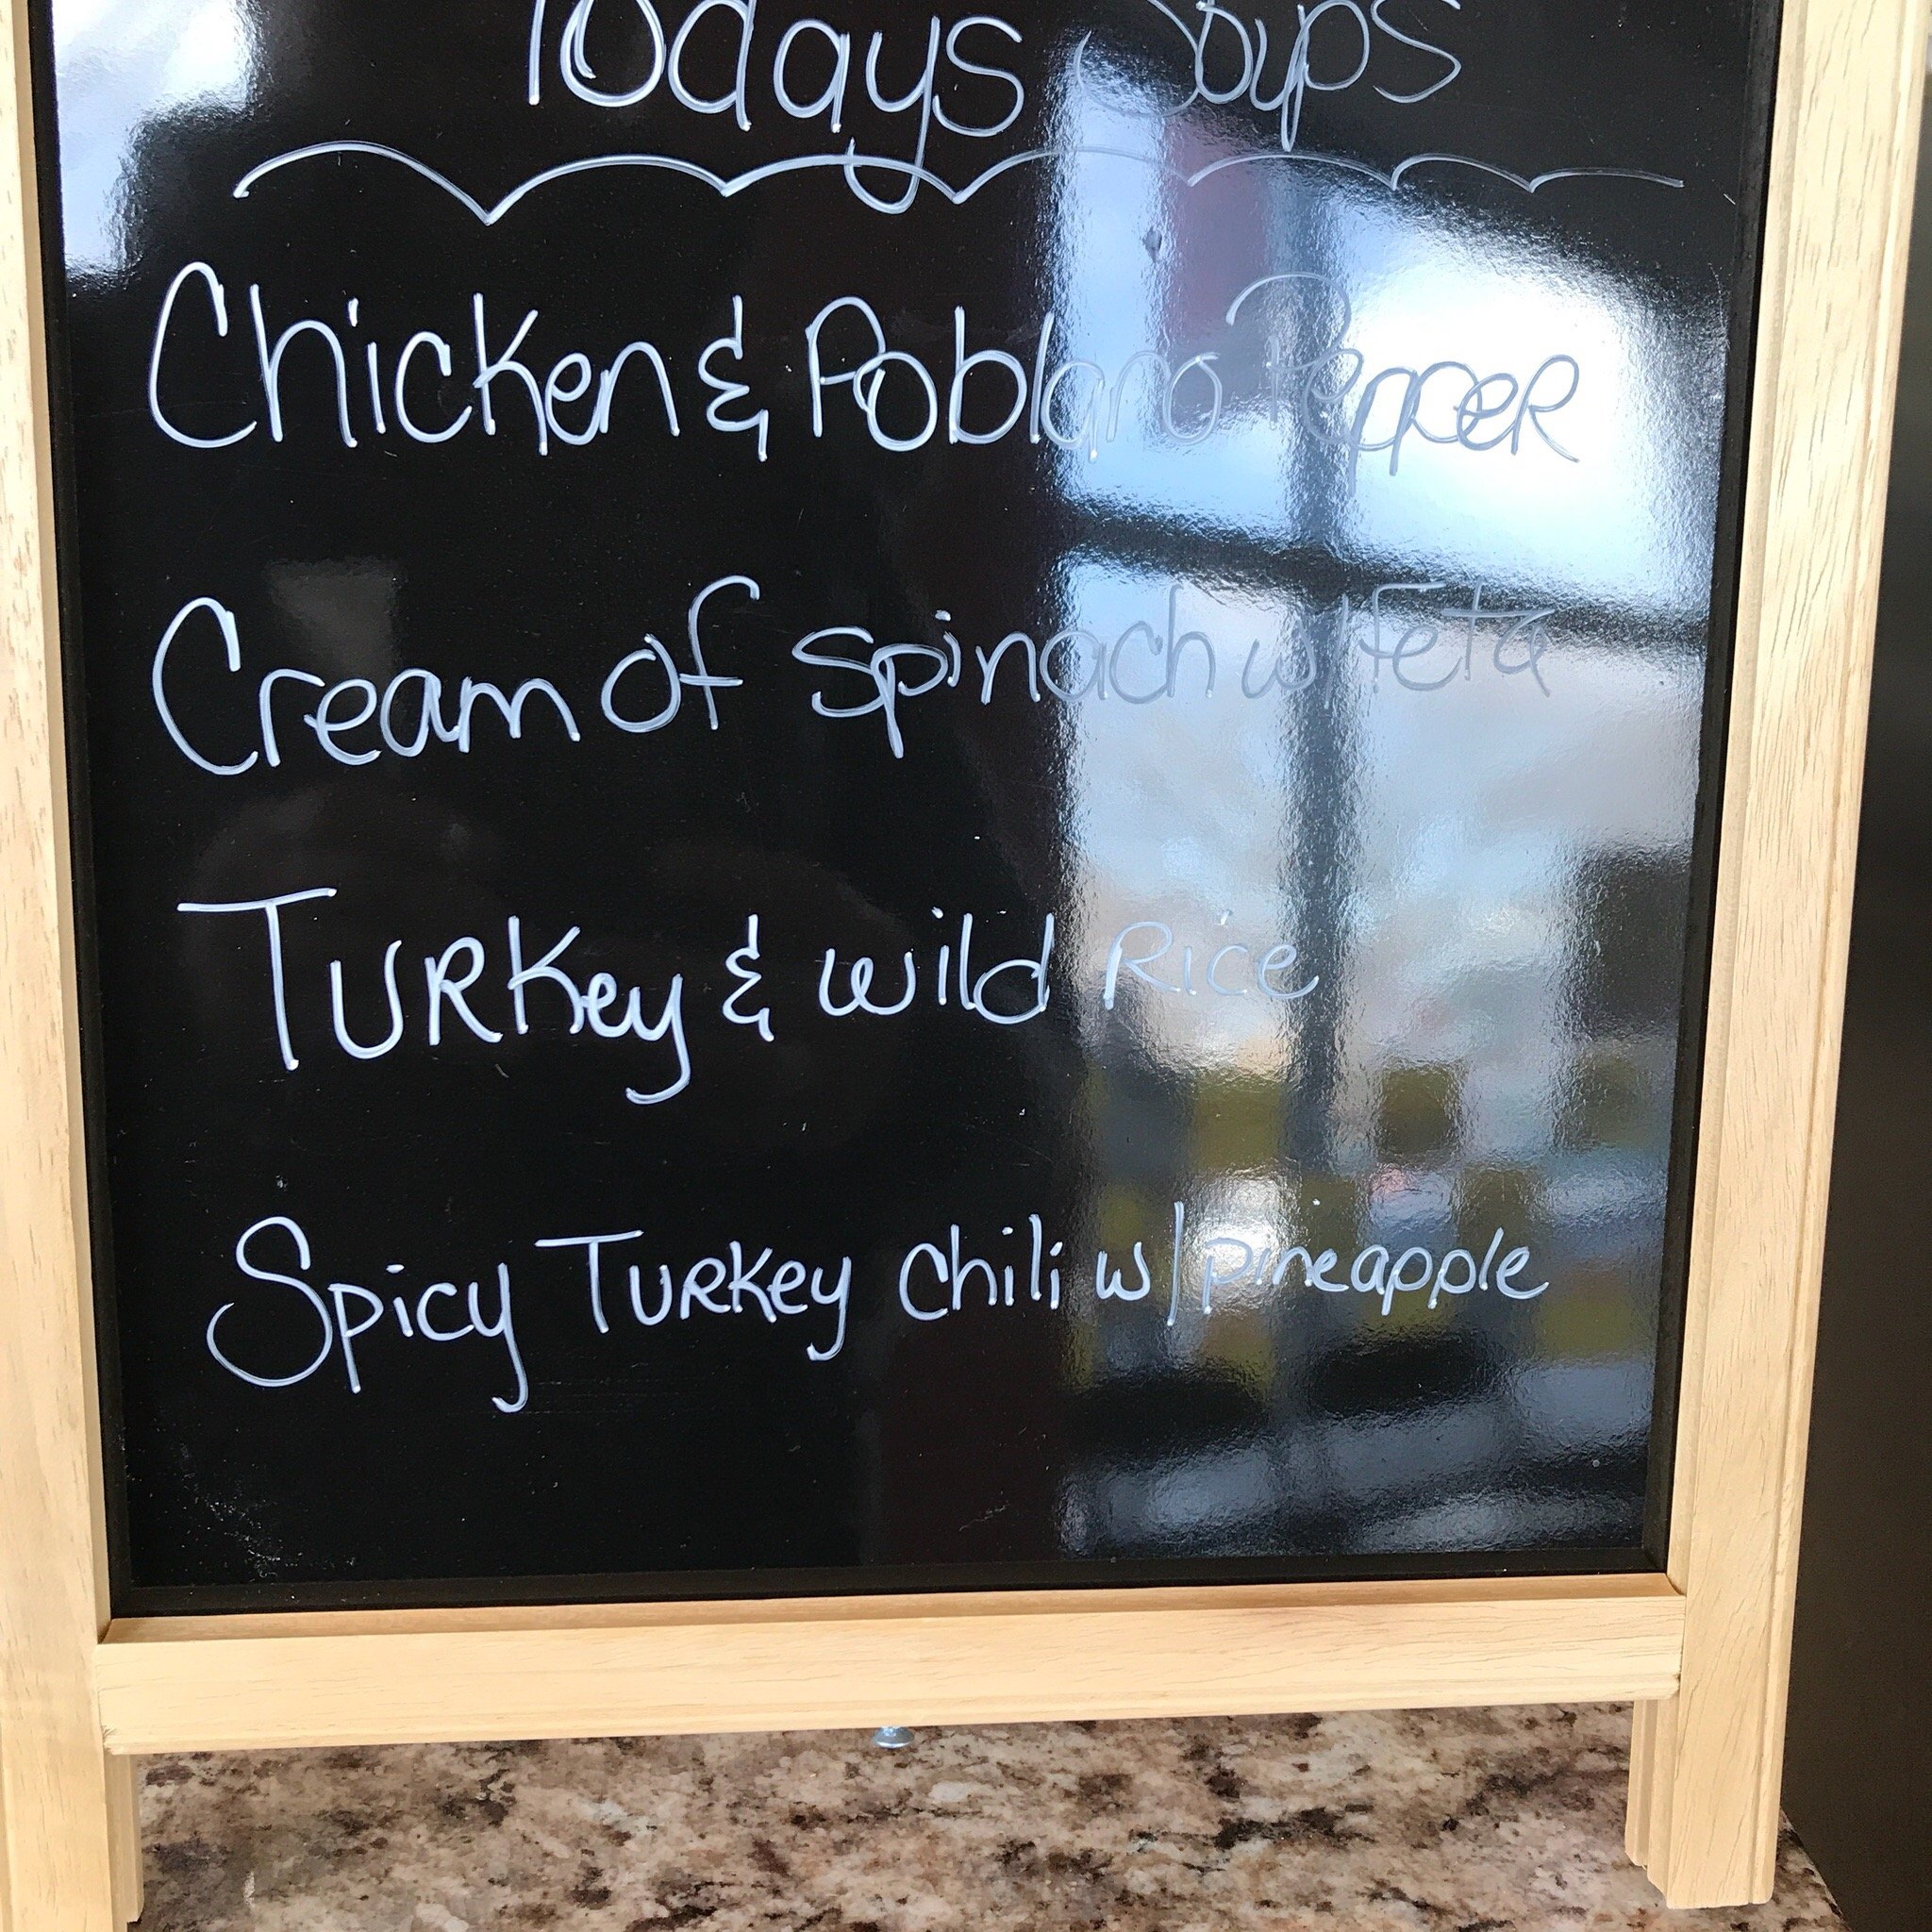 Todays Soups
Chicken & Poblano Pepper
Cream of Spinach w/Feta
Turkey & wild Rice
Spicy Turkey Chili w/pineapple